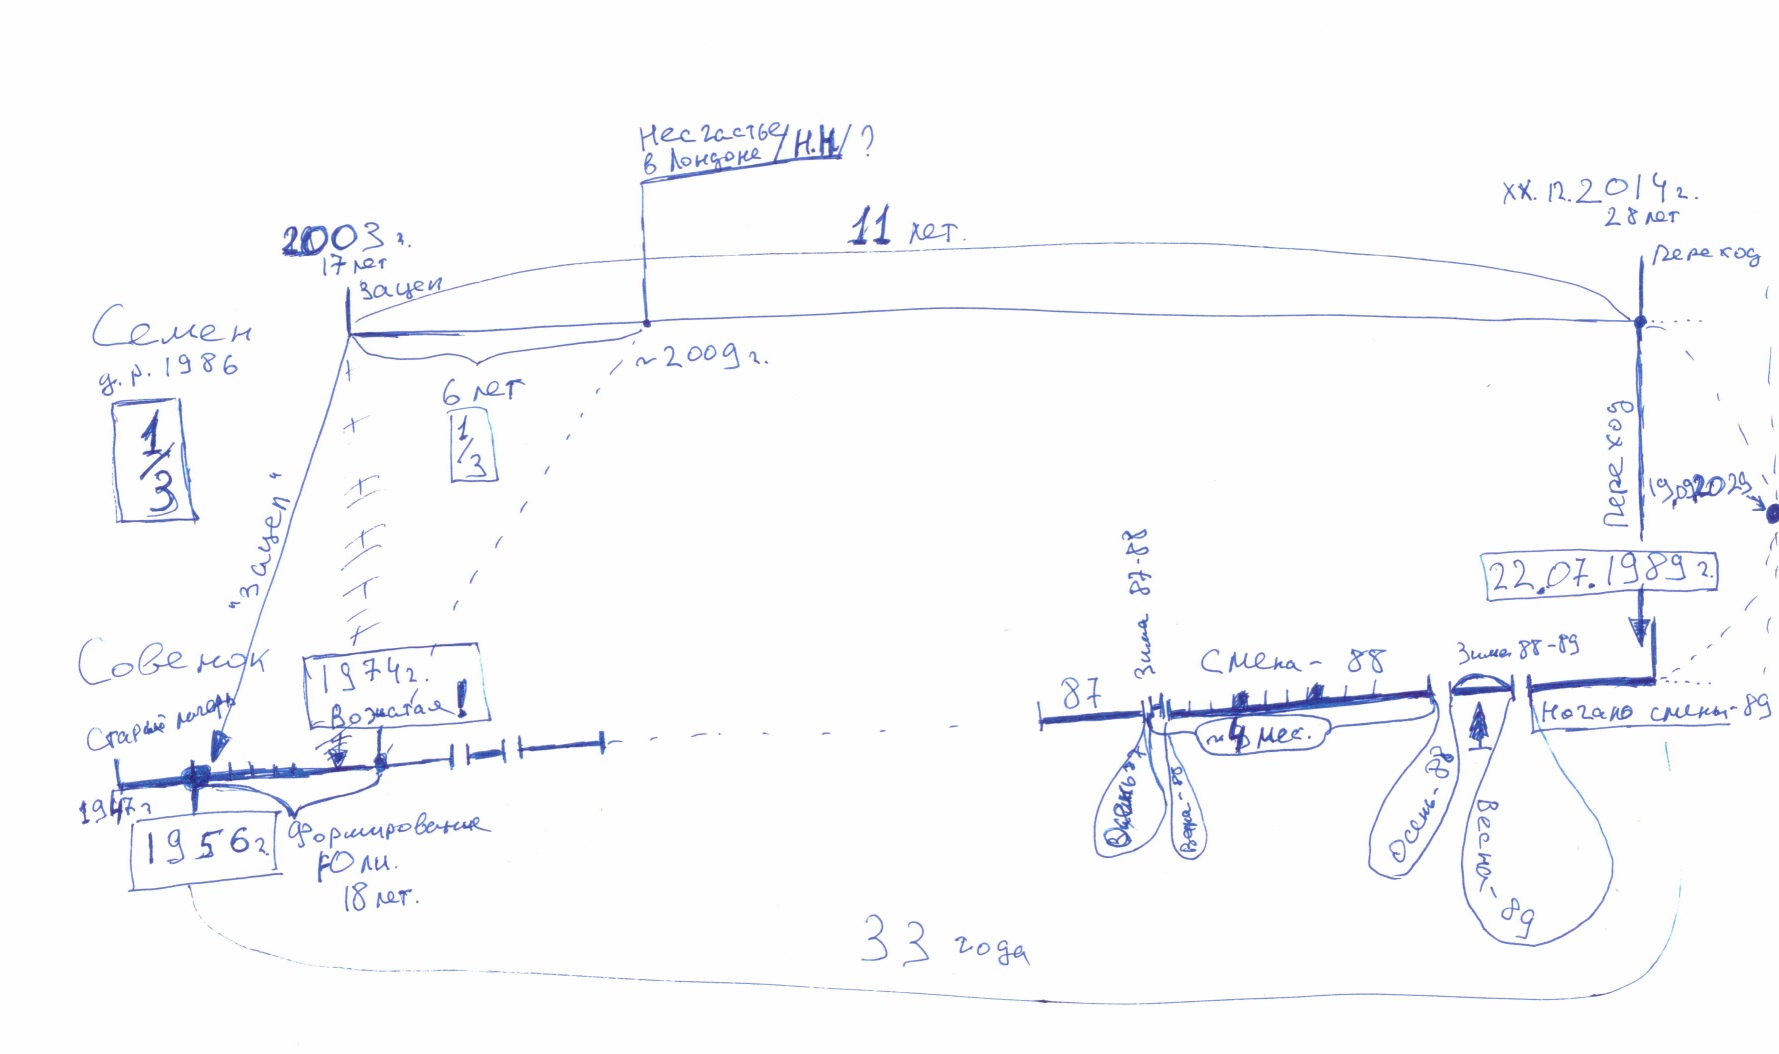 Несчастье /Н.Н/ ?
в Лондоне
11 лет.
хх.12.2014г.
28 лет
Переход
2003г.
17 лет
Зацеп
Семен
д.р. 1986
1/3
~2009г.
6 лет
1/3
"Зацеп"
Переход
19.09.2029
22.07.1989г.
Совенок
Старый лагерь
1974г.
Вожатая!
1947г.
1956г.
Формирование
Юли.
18 лет.
87
Зима 87-88
Смена - 88
Зима 88-89
Начало смены-89
~4 мес.
Осень 87
Весна-88
Осень-88
Весна-89
33 года